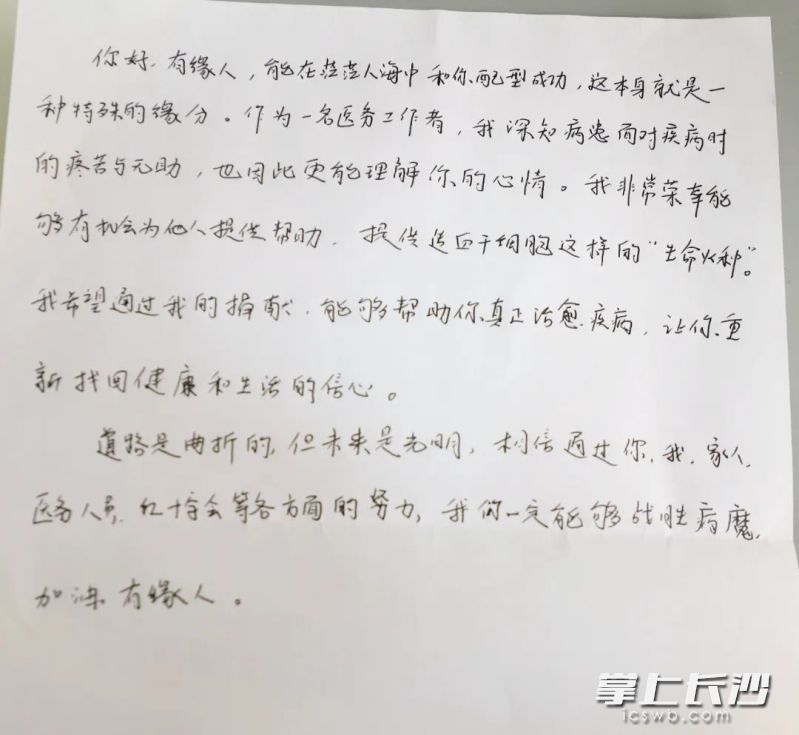 你好,有缘人,能在茫茫人海中和你配型成功,这本身就是一
种特殊的缘分。作为一名医务工作者,我深知病患面对疾病时
的疼苦与无助,也因此更能理解你的心情。我非常荣幸能
够有机会为他人提供帮助,提供造血干细胞这样的“生命火种”。
我希望通过我的捐献,能够帮助你真正治愈疾病,让你重
新找回健康和生活的信心。
道路是曲折的,但未来是光明,相信通过你、我、家人、
医务人员、红十字会等各方面的努力,我们一定能够战胜病魔,
加油,有缘人。
掌上长沙
icswb.com